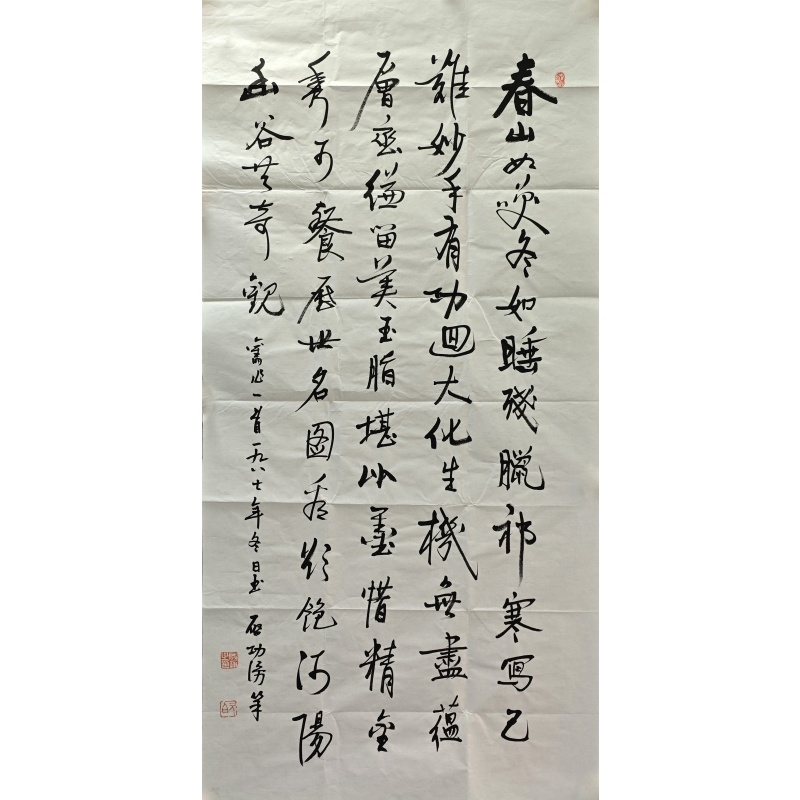 春山如笑冬如睡殘臘祁寒写已
難妙手有功迴大化生機無盡蘊
層巒縑留美玉脂堪比墨惜精金
秀可餐歷世名图看欲飽河陽
幽谷共奇觀
舊作一首一九八七年冬日書 启功